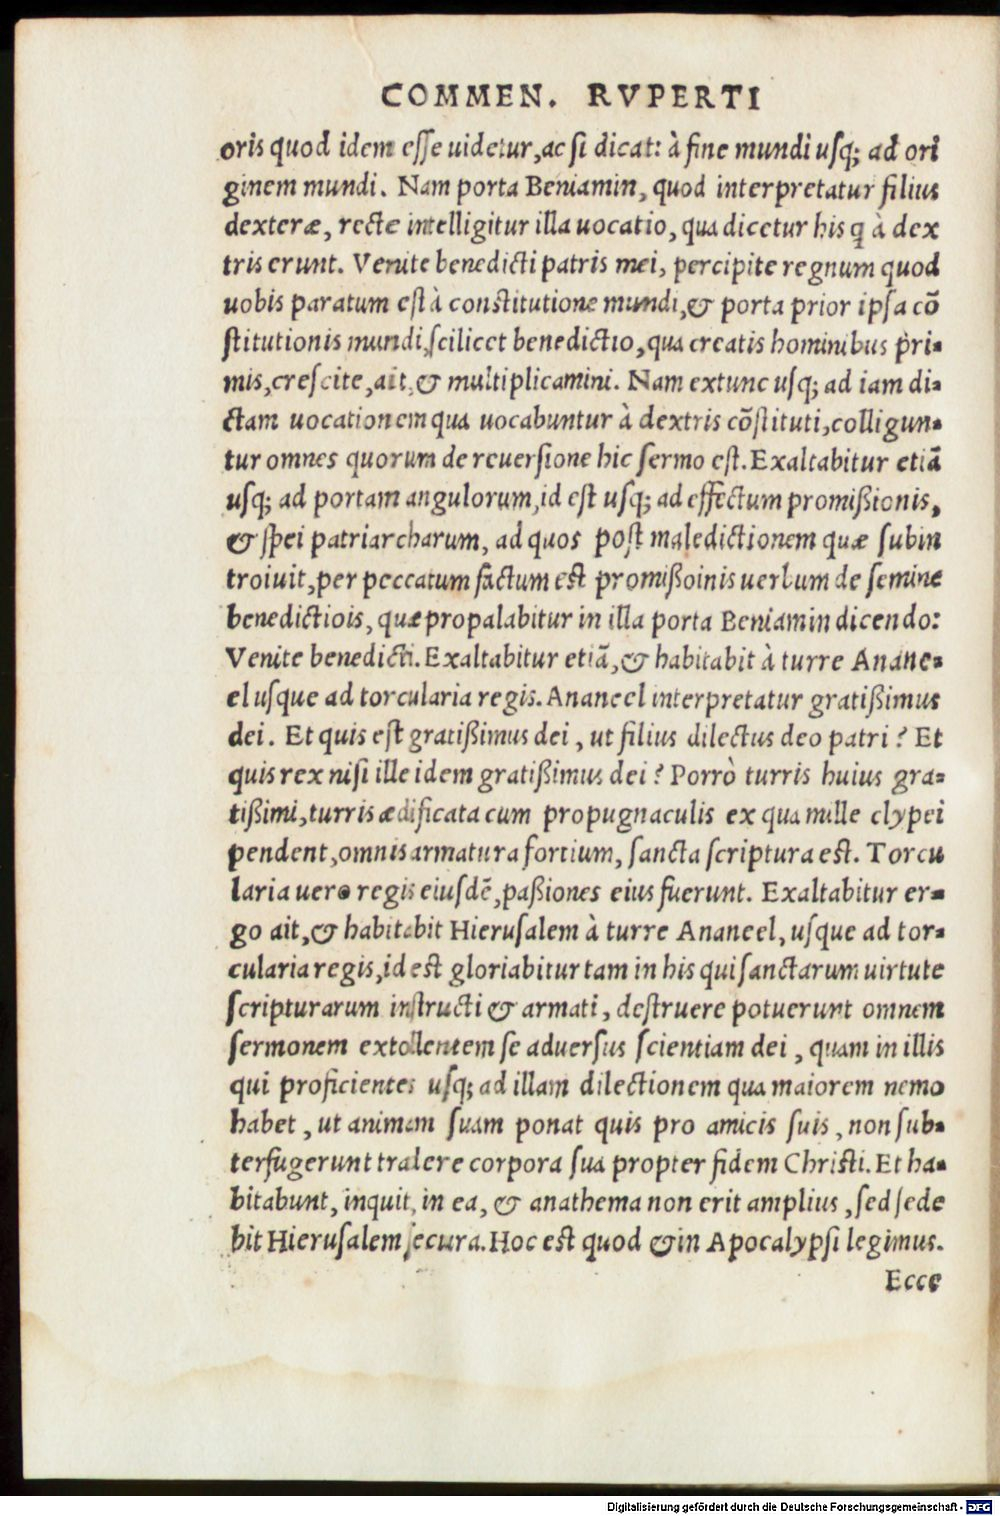 COMMEN. RVPERTI
oris quod idem esse uidetur, ac si dicat: à fine mundi usq; ad ori
ginem mundi. Nam porta Beniamin, quod interpretatur filius
dexteræ, recte intelligitur illa uocatio, qua dicetur his q̃ à dex
tris erunt. Venite benedicti patris mei, percipite regnum quod
uobis paratum est à constitutione mundi, & porta prior ipsa cõ
stitutionis mundi, scilicet benedictio, qua creatis hominibus pri-
mis, crescite, ait, & multiplicamini. Nam extunc usq; ad iam di-
ctam uocationem qua uocabuntur à dextris cõstituti, colligun-
tur omnes quorum de reuersione hic sermo est. Exaltabitur etiã
usq; ad portam angulorum, id est usq; ad effectum promißionis,
& spei patriarcharum, ad quos post maledictionem quæ subin
troiuit, per peccatum factum est promißoinis uerbum de semine
benedictiois, quæ propalabitur in illa porta Beniamin dicendo:
Venite benedicti. Exaltabitur etiã, & habitabit à turre Anane-
el usque ad torcularia regis. Ananeel interpretatur gratißimus
dei. Et quis est gratißimus dei, ut filius dilectus deo patri? Et
quis rex nisi ille idem gratißimus dei? Porrò turris huius gra-
tißimi, turris ædificata cum propugnaculis ex qua mille clypei
pendent, omnis armatura fortium, sancta scriptura est. Torcu
laria uero regis eiusdẽ, paßiones eius fuerunt. Exaltabitur er-
go ait, & habitabit Hierusalem à turre Ananeel, usque ad tor-
cularia regis, id est gloriabitur tam in his qui sanctarum uirtute
scripturarum instructi & armati, destruere potuerunt omnem
sermonem extollentem se aduersus scientiam dei, quam in illis
qui proficientes usq; ad illam dilectionem qua maiorem nemo
habet, ut animam suam ponat quis pro amicis suis, non sub-
terfugerunt tradere corpora sua propter fidem Christi. Et ha-
bitabunt, inquit, in ea, & anathema non erit amplius, sed sede
bit Hierusalem secura. Hoc est quod & in Apocalypsi legimus.
Ecce
Digitalisierung gefördert durch die Deutsche Forschungsgemeinschaft - DFG